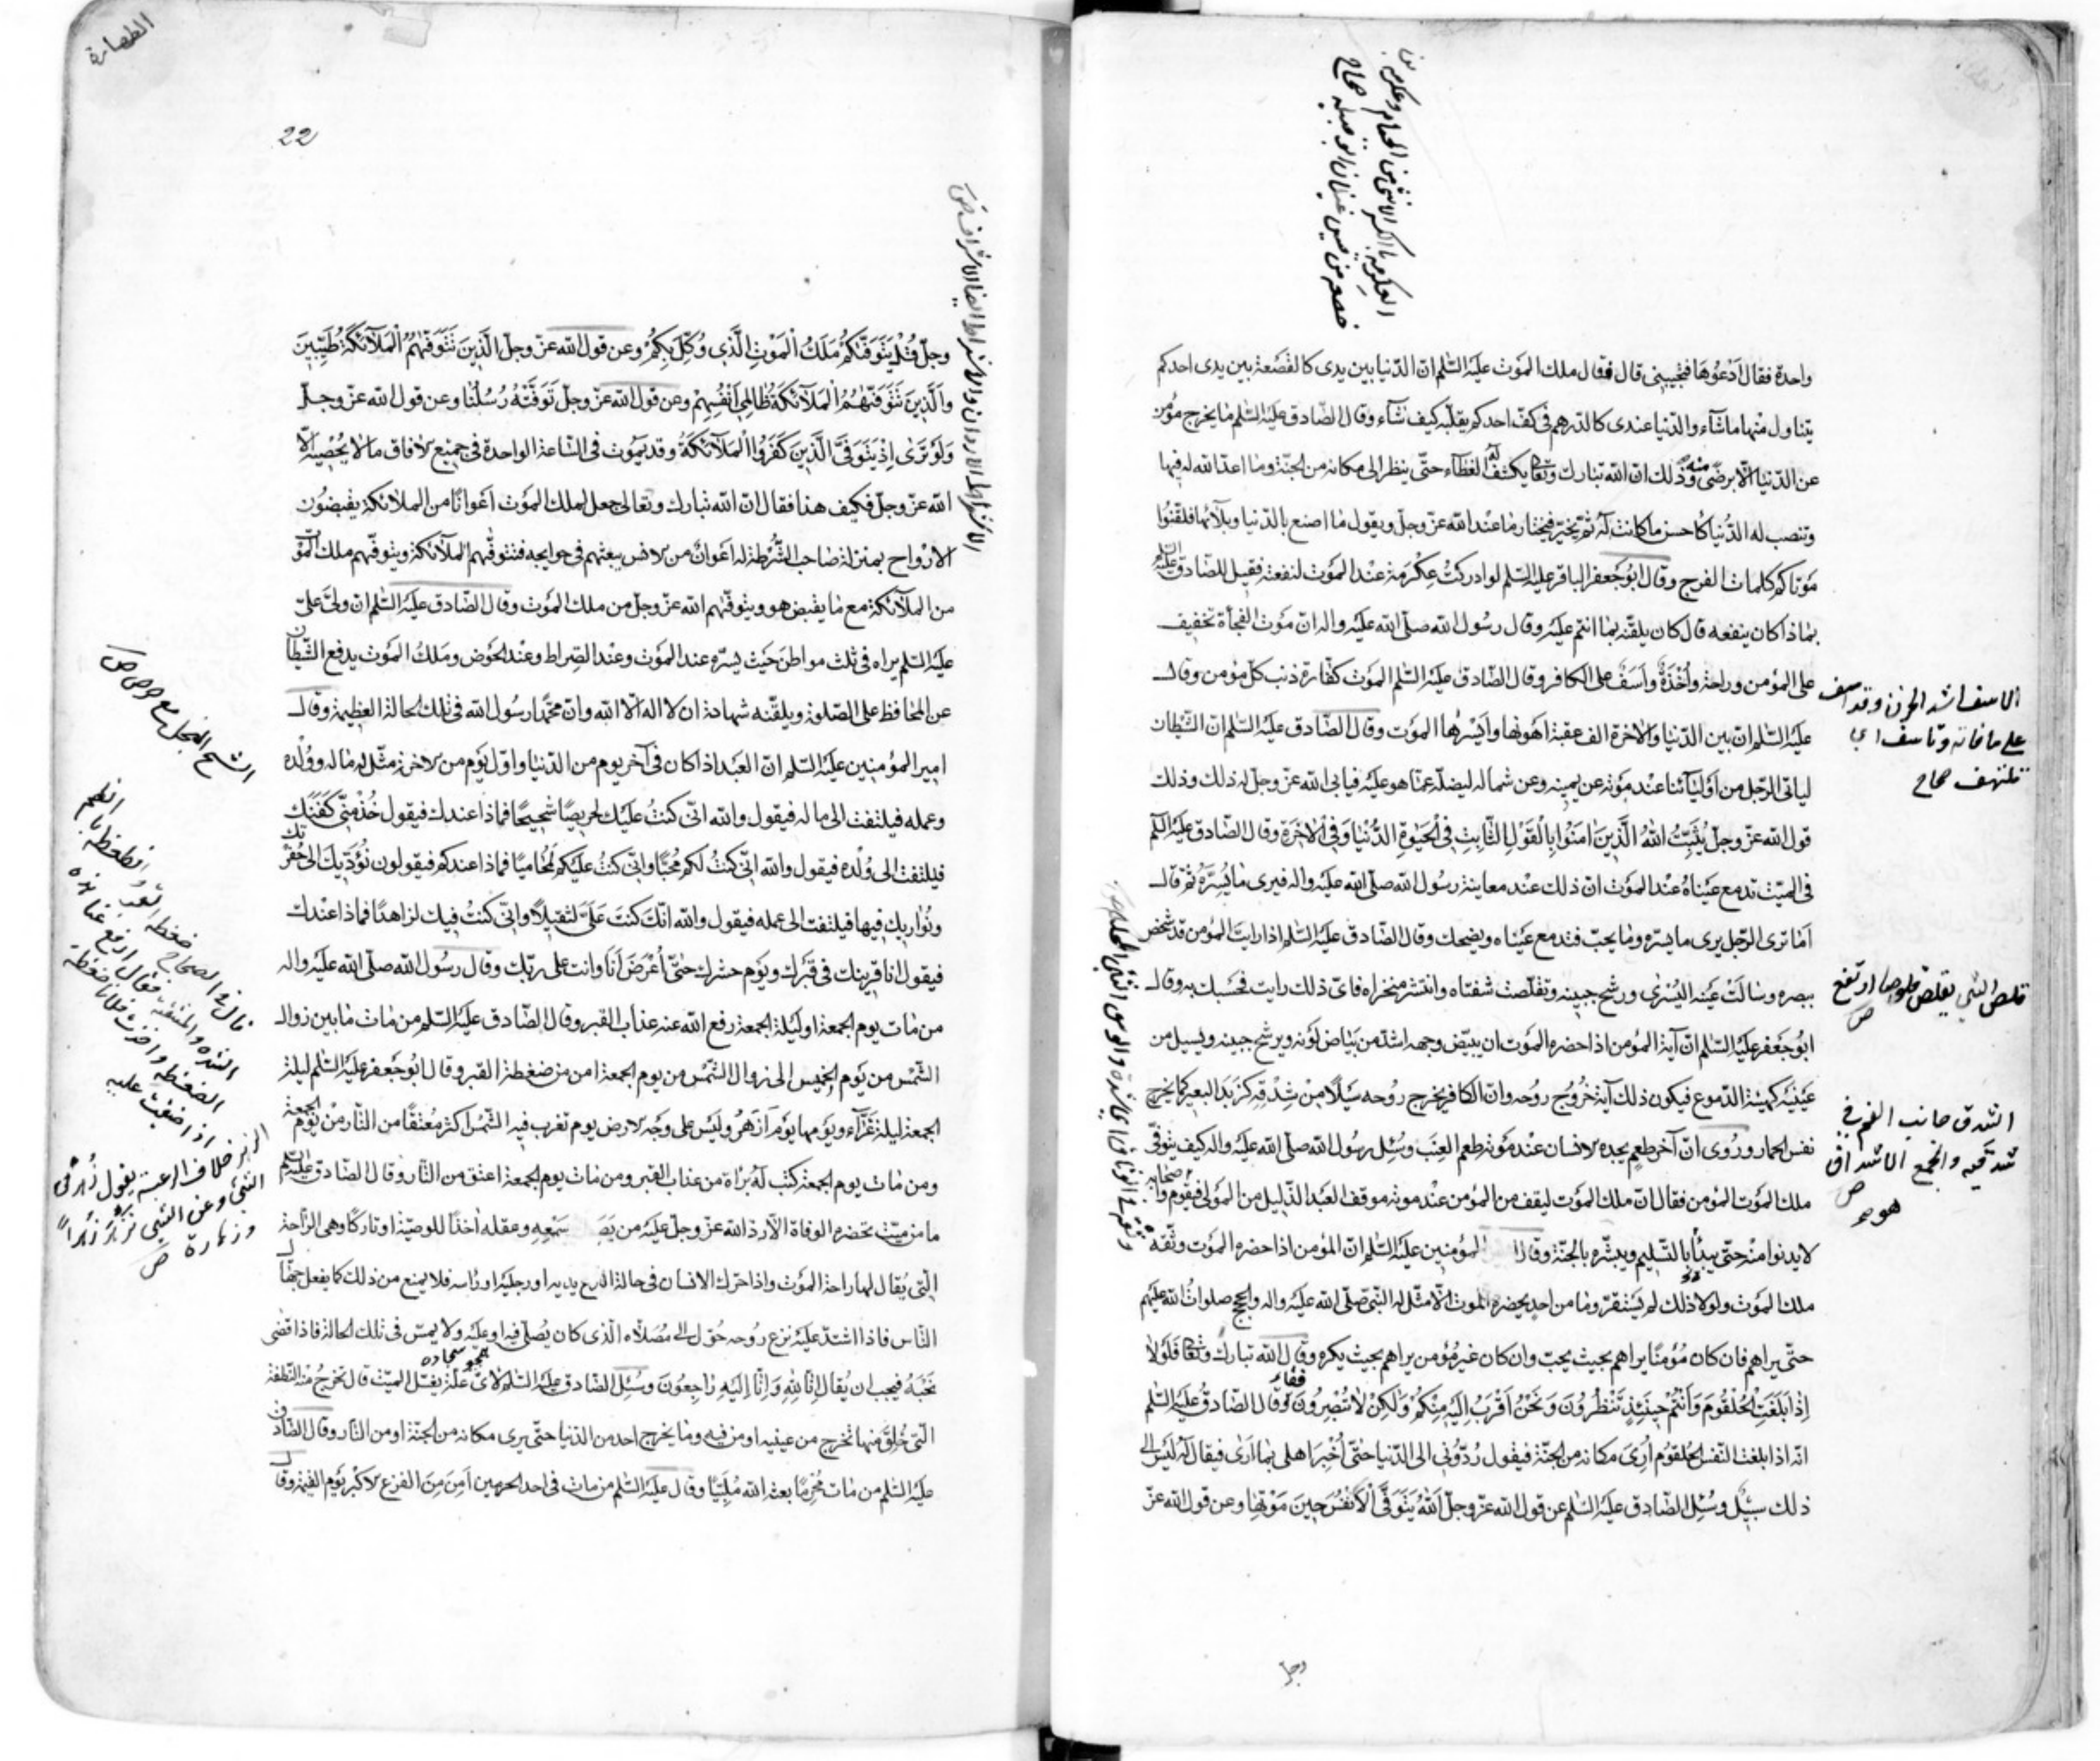 واحدة فقال ادعوها فتجيبني قال فقال ملك الموت عليه السلم ان الدنيا بين يدي كالقصعة بين يدى احدكم
يتناول منها ما شآء والدنيا عندى كالدرهم فى كف احدكم يقلبه كيف شآء وقال الصادق عليه السلم ما يخرج مؤمن
عن الدنيا الا برضى منه وذلك ان الله تبارك وتعا يكشف له الغطآء حتى ينظر الى مكانه من الجنة وما اعد الله له فيها
وتنصب له الدنيا كاحسن ما كانت له ثم يخير فيختار ما عند الله عز وجل ويقول ما اصنع بالدنيا وبلآئها فلقنوا
موتاكم كلمات الفرج وقال ابو جعفر الباقر عليه السلم لو ادركت عكرمة عند الموت لنفعته فقيل للصادق عليه السلم
بماذا كان ينفعه قال كان يلقنه بما انتم عليه وقال رسول الله صلى الله عليه واله ان موت الفجأة تخفيف
على المؤمن وراحة واخذة واسف على الكافر وقال الصادق عليه السلم الموت كفارة ذنب كل مؤمن وقال
عليه السلم ان بين الدنيا والاخرة الف عقبة اهونها وايسرها الموت وقال الصادق عليه السلم ان الشيطان
لياتى الرجل من اوليآئنا عند موته عن يمينه وعن شماله ليضله عما هو عليه فيابى الله عز وجل له ذلك وذلك
قول الله عز وجل يثبت الله الذين امنوا بالقول الثابت في الحيوة الدنيا وفي الاخرة وقال الصادق عليه السلم
فى الميت تدمع عيناه عند الموت ان ذلك عند معاينة رسول الله صلى الله عليه واله فيرى ما يسره ثم قال
اما ترى الرجل يرى ما يسره وما يحب فتدمع عيناه ويضحك وقال الصادق عليه السلم اذا رايت المؤمن قد شخص
ببصره وسالت عينه اليسرى ورشح جبينه وتقلصت شفتاه وانتشر منخراه فاى ذلك رايت فحسبك به وقال
ابو جعفر عليه السلم ان آية المؤمن اذا حضره الموت ان يبيض وجهه اشد من بياض لونه ويرشح جبينه ويسيل من
عينيه كهيئة الدموع فيكون ذلك آية خروج روحه وان الكافر يخرج روحه سيلا من شدقه كزبد البعير كما يخرج
نفس الحمار وروى ان آخر طعم يجده الانسان عند موته طعم العنب وسئل رسول الله صلى الله عليه واله كيف يتوفى
ملك الموت المؤمن فقال ان ملك الموت ليقف من المؤمن عند موته موقف العبد الذليل من المولى فيقوم واصحابه
لا يدنوا منه حتى يبدأ بالتسليم ويبشره بالجنة وقال المؤمنين عليه السلم ان المؤمن اذا حضره الموت وثقه
ملك الموت ولولا ذلك لم يستقر وما من احد يحضره الموت الا مثل له النبى صلى الله عليه واله والحجج صلوات الله عليهم
حتى يراهم فان كان مؤمنا يراهم بحيث يحب وان كان غير مؤمن يراهم بحيث يكره وقال الله تبارك وتعا فلولا
اذا بلغت الحلقوم وانتم حينئذ تنظرون ونحن اقرب اليه منكم ولكن لا تبصرون وقال الصادق عليه السلم
انه اذا بلغت النفس الحلقوم ارى مكانه من الجنة فيقول ردوني الى الدنيا حتى اخبر اهلى بما ارى فيقال له ليس الى
ذلك سبيل وسئل الصادق عليه السلم عن قول الله عز وجل الله يتوفى الانفس حين موتها وعن قول الله عز
الاسف اشد الحزن وقد اسف
على ما فاته وتاسف اى
تلهف صحاح
قلص الشي يقلص قلوصا ارتفع
ص
الشدق جانب الفم
شدقيه والجمع الاشداق
ص
وجل
22
وجل قل يتوفيكم ملك الموت الذى وكل بكم وعن قول الله عز وجل الذين تتوفيهم الملآئكة طيبين
والذين تتوفيهم الملآئكة ظالمى انفسهم وعن قول الله عز وجل توفته رسلنا وعن قول الله عز وجل
ولو ترى اذ يتوفى الذين كفروا الملآئكة وقد يموت فى الساعة الواحدة فى جميع الافاق ما لا يحصيه الا
الله عز وجل فكيف هذا فقال ان الله تبارك وتعالى جعل لملك الموت اعوانا من الملائكة يقبضون
الارواح بمنزلة صاحب الشرطة له اعوان من الانس يبعثهم فى حوايجه فتتوفيهم الملآئكة ويتوفيهم ملك الموت
من الملآئكة مع ما يقبض هو ويتوفيهم الله عز وجل من ملك الموت وقال الصادق عليه السلم ان ولى على
عليه السلم يراه فى ثلث مواطن حيث يسره عند الموت وعند الصراط وعند الحوض وملك الموت يدفع الشيطان
عن المحافظ على الصلوة ويلقنه شهادة ان لا اله الا الله وان محمدا رسول الله فى تلك الحالة العظيمة وقال
امير المؤمنين عليه السلم ان العبد اذا كان فى آخر يوم من الدنيا واول يوم من الاخرة مثل له ماله وولده
وعمله فيلتفت الى ماله فيقول والله انى كنت عليك لحريصا شحيحا فماذا عندك فيقول خذ منى كفنك
فيلتفت الى ولده فيقول والله انى كنت لكم محبا وانى كنت عليكم لمحاميا فماذا عندكم فيقولون نؤديك الى حفرتك
ونواريك فيها فيلتفت الى عمله فيقول والله انك كنت على لثقيلا وانى كنت فيك لزاهدا فماذا عندك
فيقول انا قرينك فى قبرك ويوم حشرك حتى اعرض انا وانت على ربك وقال رسول الله صلى الله عليه واله
من مات يوم الجمعة او ليلة الجمعة رفع الله عنه عذاب القبر وقال الصادق عليه السلم من مات ما بين زوال
الشمس من يوم الخميس الى زوال الشمس من يوم الجمعة امن من ضغطة القبر وقال ابو جعفر عليه السلم ليلة
الجمعة ليلة غرآء ويومها يوم ازهر وليس على وجه الارض يوم تغرب فيه الشمس اكثر معتقا من النار من يوم الجمعة
ومن مات يوم الجمعة كتب له براة من عذاب القبر ومن مات يوم الجمعة اعتق من النار وقال الصادق عليه السلم
ما من ميت تحضره الوفاة الا رد الله عز وجل عليه من سمعه وعقله اخذا للوصية او تاركا وهى الراحة
التى يقال لها راحة الموت واذا حرك الانسان فى حالة النزع يديه او رجليه او راسه فلا يمنع من ذلك كما يفعل جهال
الناس فاذا اشتد عليه نزع روحه حول الى مصلاه الذى كان يصلى فيه او عليه ولا يمس فى تلك الحالة فاذا قضى
نحبه فيجب ان يقال انا لله وانا اليه راجعون وسئل الصادق عليه السلم لاى علة يغسل الميت قال تخرج منه النطفة
التى خلق منها تخرج من عينيه او من فيه وما يخرج احد من الدنيا حتى يرى مكانه من الجنة او من النار وقال الصادق
عليه السلم من مات محرما بعثه الله ملبيا وقال عليه السلم من مات فى احد الحرمين امن من الفزع الاكبر يوم القيمة وقال
الشح البخل مع حرص ص